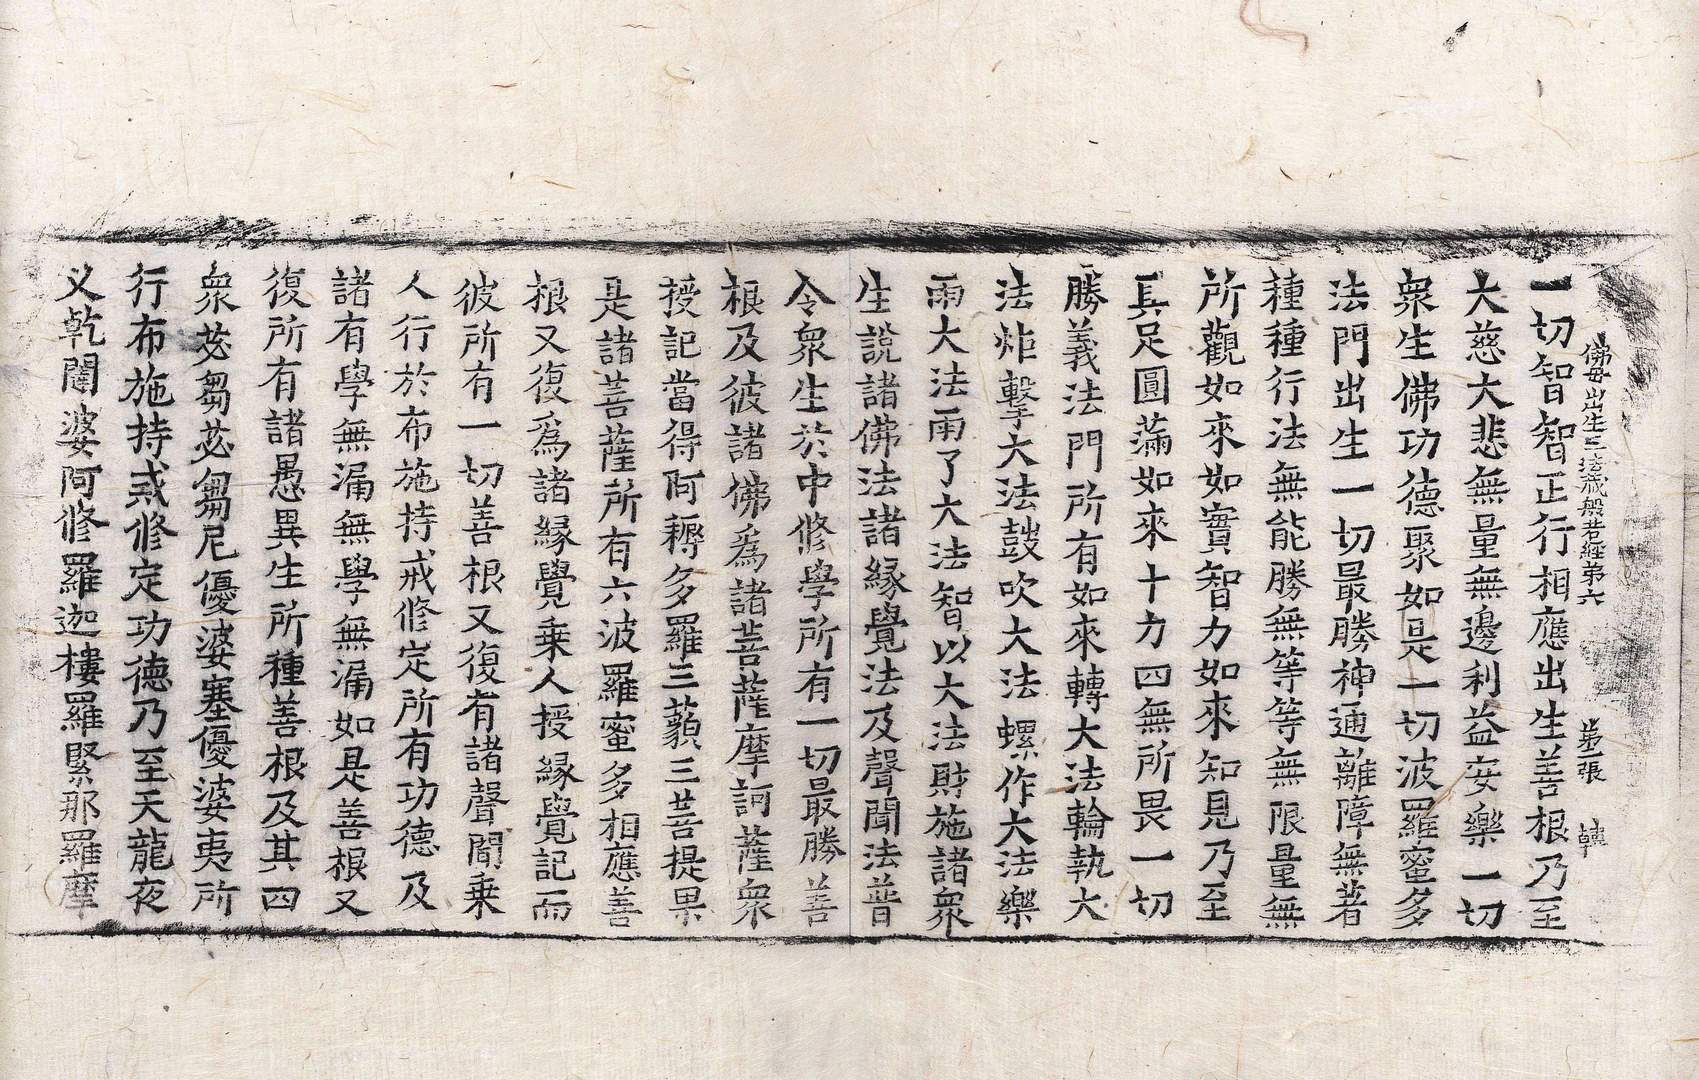 佛母出生三法藏般若經第六 第二張 韓
一切智智正行相應出生善根乃至
大慈大悲無量無邊利益安樂一切
衆生佛功德聚如是一切波羅蜜多
法門出生一切最勝神通離障無著
種種行法無能勝無等等無限量無
所觀如來如實智力如來知見乃至
具足圓滿如來十力四無所畏一切
勝義法門所有如來轉大法輪執大
法炬擊大法鼓吹大法螺作大法樂
雨大法雨了大法智以大法財施諸衆
生說諸佛法諸緣覺法及聲聞法普
令衆生於中修學所有一切最勝善
根及彼諸佛爲諸菩薩摩訶薩衆
授記當得阿耨多羅三藐三菩提果
是諸菩薩所有六波羅蜜多相應善
根又復爲諸緣覺乗人授緣覺記而
彼所有一切善根又復有諸聲聞乗
人行於布施持戒修定所有功德及
諸有學無漏無學無漏如是善根又
復所有諸愚異生所種善根及其四
衆苾芻苾芻尼優婆塞優婆夷所
行布施持戒修定功德乃至天龍夜
叉乾闥婆阿修羅迦樓羅緊那羅摩